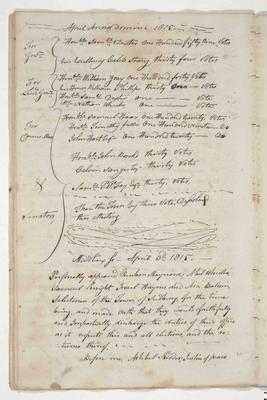 April Anno Domini 1815
For Gov.r
Hon.ble Sam.l Dexter One Hundred fifty nine Votes
his Excellency Caleb Strong thirty four Votes
For Lieu.t Gov.r
Hon.ble William Gray One Hundred forty Votes
his Honor William Phillips thirty Votes
Hon.ble Sam.l Dexter One Vote
Nathan Weeks One Vote
For Counsellors & Senators
Hon.ble Samuel Hoar One Hundred twenty Votes
Hon.ble Timothy Fuller One Hundred Do
John Hart Esq.r One Hundred twenty Do
Hon.ble John Brooks thirty Votes
Calvin Sanger thirty Votes
Sam.l P. P. Fay Esq.r thirty Votes
Then the Town by their Vote Dissolved
this Meeting
Middlesex Ss April 3.d 1815.
Personally appeared Reuben Haynes Abel Wheeler
Samuel Knight Israel Haynes and Asa
Selectmen of the Town of Sudbury for the time
being, and made oath that they would faithfully
and Impartially discharge the duties of their office
as it respects this and all elections, and the re-
turns thereof.
Before me Ashbel Kidder Justice of peace